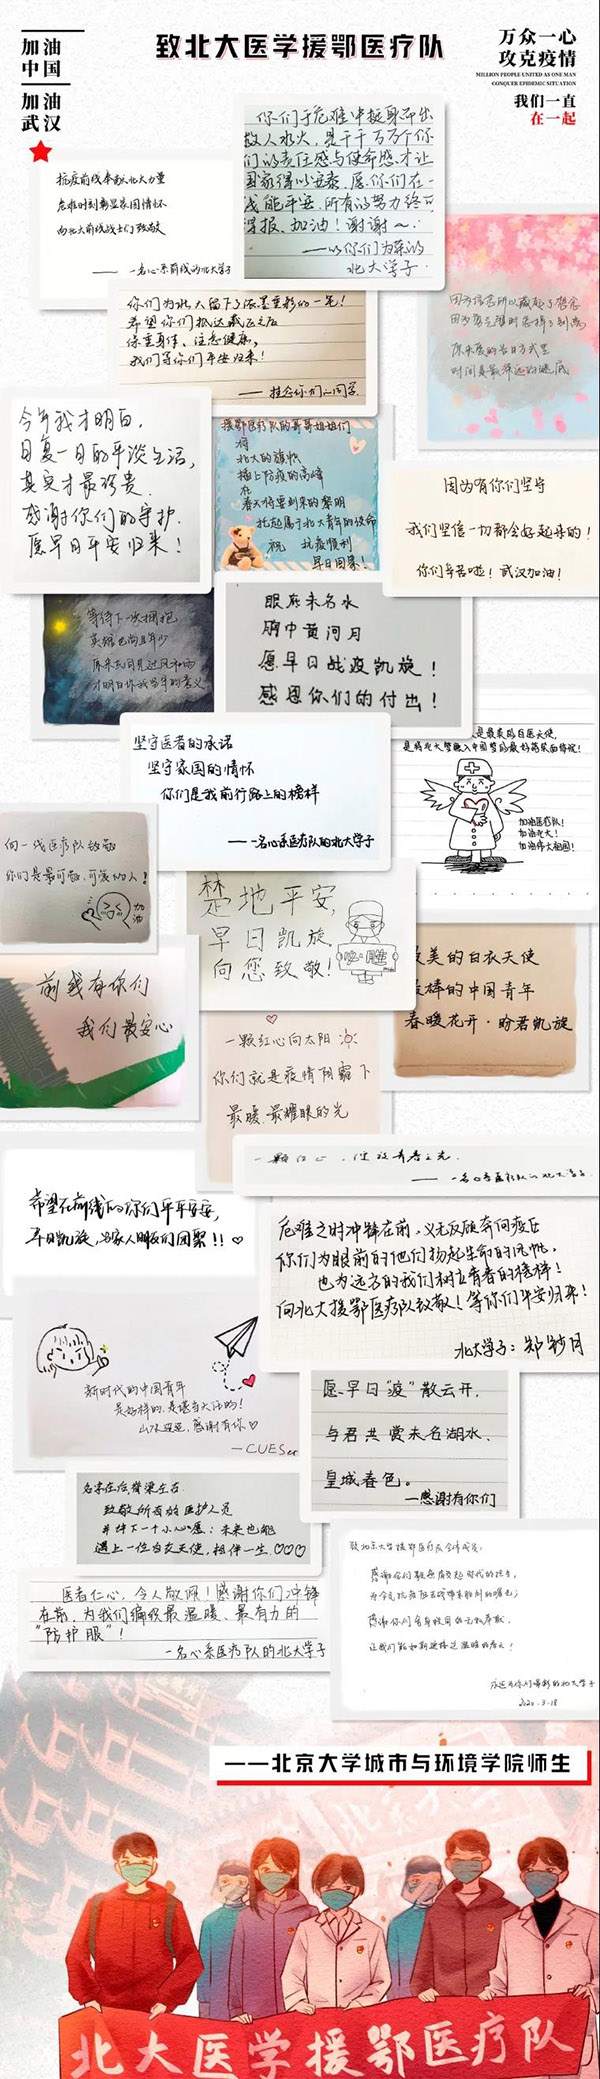 加油
中国
加油
武汉
致北大医学援鄂医疗队
万众一心
攻克疫情
MILLION PEOPLE UNITED AS ONE MAN
CONQUER EPIDEMIC SITUATION
我们一直
在一起
你们于危难中挺身而出
救人水火，是千千万万个你
们的责任感与使命感，才让
国家得以安泰，愿你们在一
线能平安，所有的努力终可
得报、加油！谢谢～
——以你们为荣的
北大学子
抗疫前线奉献北大力量
危难时刻彰显家国情怀
向北大前线战士们致敬
——一名心系前线的北大学子
你们为北大留下了浓墨重彩的一笔！
希望你们
保重身体、注意健康，
我们等你们平安归来！
——挂念你们的同学
今年我才明白，
日复一日的平淡生活，
其实才最珍贵.
感谢你们的守护.
愿早日平安归来！
援鄂医疗队的哥哥姐姐们
将
北大的旗帜
插上防疫的高峰
在
春天将要到来的黎明
托起属于北大青年的使命
祝 抗疫顺利
早日回家！
因为有你们坚守
我们坚信一切都会好起来的！
你们辛苦啦！武汉加油！
等待下一次拥抱
英雄也尚且年少
眼底未名水
胸中黄河月
愿早日战疫凯旋！
感恩你们的付出！
坚守医者的承诺
坚守家国的情怀
你们是我前行路上的榜样
——一名心系医疗队的北大学子
人是最美的白衣天使，
加油医疗队！
加油北大！
加油伟大祖国！
向一线医疗队致敬
你们是最可敬，可爱的人！
加油
楚地平安，
早日凯旋，
向您致敬！
必胜
前线有你们
我们最安心
美的白衣天使
棒的中国青年
春暖花开·盼君凯旋
一颗红心向太阳
你们就是疫情阴霾下
最暖、最耀眼的光
一颗红心，绽放青春之光.
——一名心系医疗队的北大学子
希望在前线的你们平平安安，
早日凯旋，与家人朋友们团聚！！
危难之时冲锋在前，义无反顾奔向疫区
你们为眼前的他们扬起生命的风帆，
也为远方的我们树立青春的榜样！
向北大援鄂医疗队致敬！等你们平安归来！
北大学子：郑钞月
新时代的中国青年
是好样的，是堪当大任的！
山水迢迢，感谢有你
—CUESer
愿早日“疫”散云开，
与君共赏未名湖水、
皇城春色。
—感谢有你们
名字在后，脊梁在右.
致敬所有的医护人员
并许下一个小心愿：未来也能
遇上一位白衣天使，相伴一生
医者仁心，令人敬佩！感谢你们冲锋
在前，为我们编织最温暖、最有力的
“防护服”！
—一名心系医疗队的北大学子
致北京大学援鄂医疗队全体成员：
2020.3.18
——北京大学城市与环境学院师生
北大医学援鄂医疗队